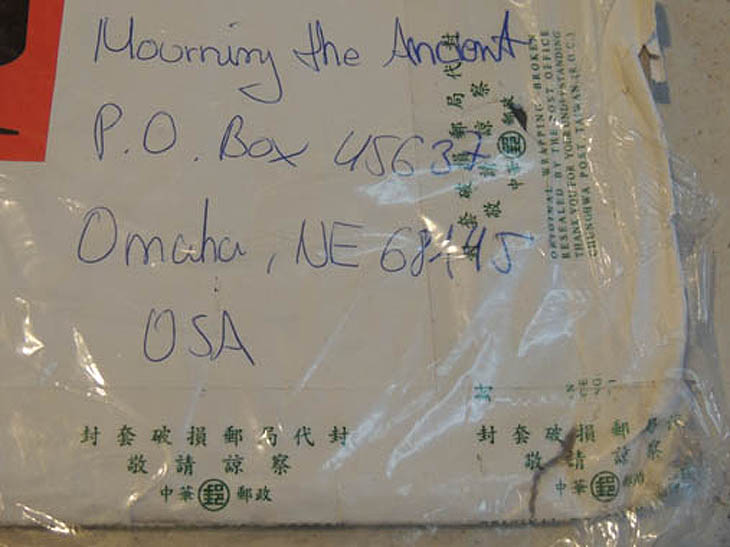 Mourning the Ancient
P.O. Box 45637
Omaha, NE 68145
USA
封套破損郵局代封
敬請諒察
中華郵政
ORIGINAL WRAPPING BROKEN
RESEALED BY THE POST OFFICE
THANK YOU FOR YOUR UNDERSTANDING
CHUNGHWA POST, TAIWAN (R.O.C.)
封
封套破損郵局代封
敬請諒察
中華郵郵政
封套破損郵局
敬請諒察
中華郵郵政
ORIGINAL